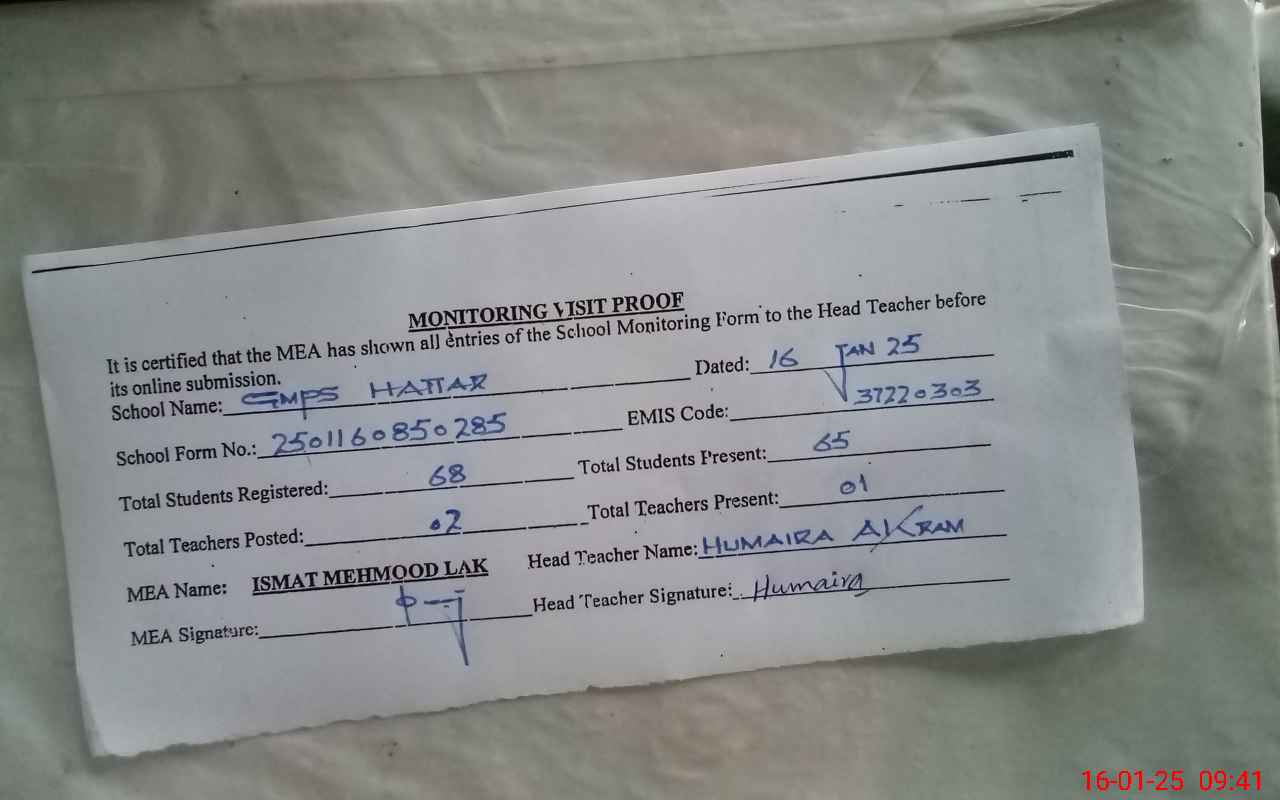 MONITORING VISIT PROOF
It is certified that the MEA has shown all entries of the School Monitoring Form to the Head Teacher before
its online submission.
School Name: GMPS HATTAR Dated: 16 JAN 25
School Form No.: 2501160850285 EMIS Code: 37220303
Total Students Registered: 68 Total Students Present: 65
Total Teachers Posted: 02 Total Teachers Present: 01
MEA Name: ISMAT MEHMOOD LAK Head Teacher Name: HUMAIRA AKRAM
MEA Signature: Head Teacher Signature: Humaira
16-01-25 09:41